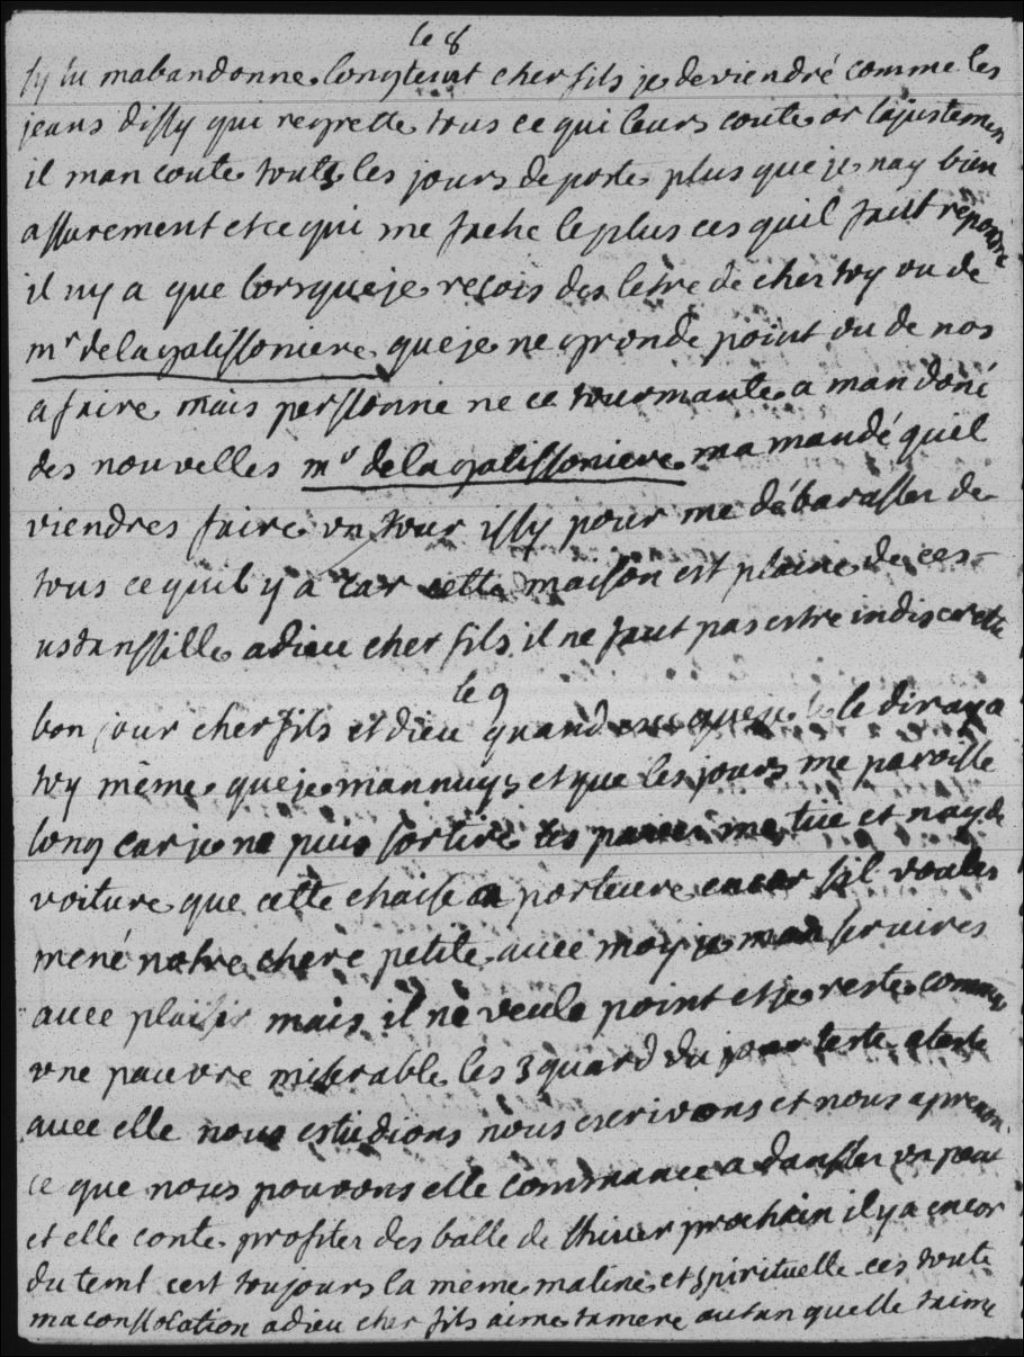 le 8
sy tu mabandonne longtemt cher fils je deviendré comme les
jeans dissy qui regrette tous ce qui leurs coute or lajustemen
il man coute touts les jours de porte plus que je nay bien
assurement et ce qui me fache le plus ces quil faut repondre
il ny a que lorsque je recois des letre de cher toy ou de
mr de la galissoniere que je ne gronde point ou de nos
afaire mais perssonne ne ce tourmante a man doné
des nouvelles mr de la galissoniere ma mandé quil
viendres faire un tour issy pour me débarasser de
tous ce quil y a car cette maison est plaine de ces
ustanssille adieu cher fils il ne faut pas estre indiscrette
le 9
bon jour cher fils et dieu quand que je le diray a
toy même que je mannuys et que les jours me paroisse
long car je ne puis sortire les me tue et nay de
voiture que cette chaise a porteure encor sil voules
mené notre chere petite avec moy je man servires
avec plaisir mais il ne veule point et je reste comme
une pauvre miserable les 3 quard du jour teste a teste
avec elle nous estudions nous escrivons et nous aprenon
ce que nous pouvons elle commance a dansser un peu
et elle conte profiter des balle de lhiver prochain il y a encor
du temt cest toujours la meme maline et spirituelle ces toute
ma conssolation adieu cher fils aime ta mere autan quelle taime